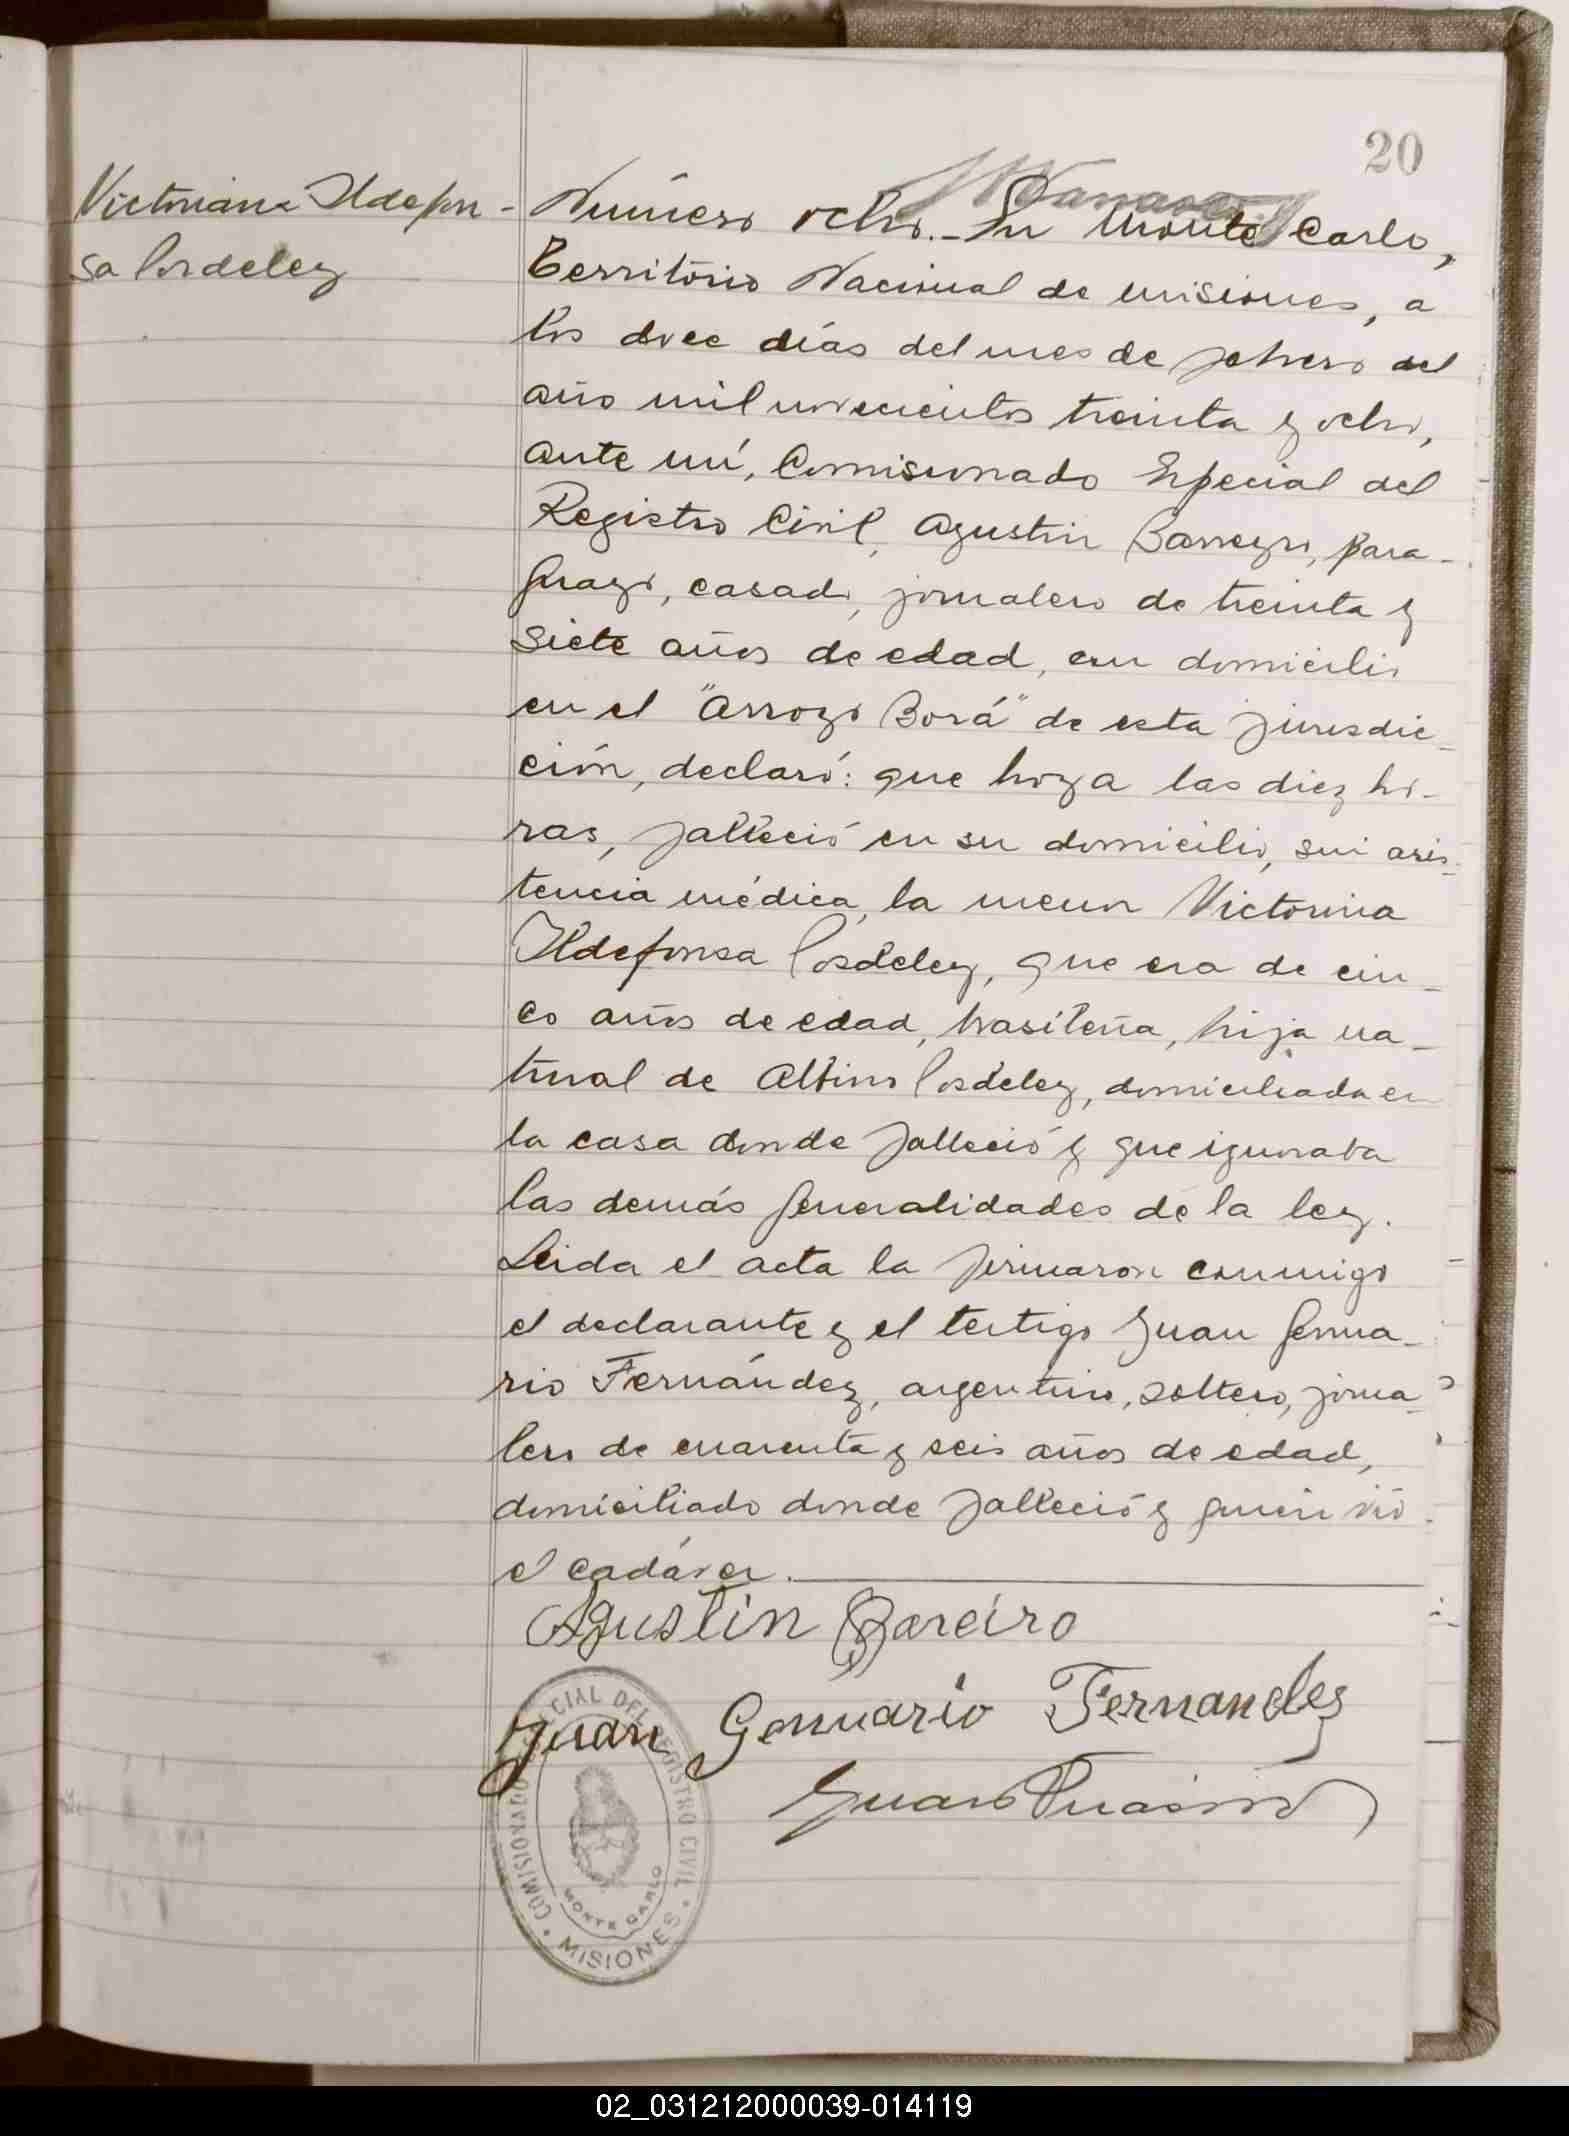 20
Victoriana Ildefon-
sa Cordeley
Número ocho.- En Monte Carlo,
Territorio Nacional de Misiones, a
los doce días del mes de febrero del
año mil novecientos treinta y ocho,
ante mí, Comisionado Especial del
Registro Civil, Agustin Barreyro, para-
guayo, casado, jornalero de treinta y
siete años de edad, con domicilio
en el "Arroyo Borá" de esta jurisdic-
ción, declaró: que hoy a las diez ho-
ras, falleció en su domicilio, sin asis-
tencia médica, la menor Victorina
Ildefonsa Cordeley, que era de cin-
co años de edad, brasileña, hija na-
tural de Albino Cordeley, domiciliada en
la casa donde falleció y que ignoraba
las demás generalidades de la ley.
Leida el acta la firmaron conmigo
el declarante y el testigo Juan Genua-
rio Fernández, argentino, soltero, jorna-
lero de cuarenta y seis años de edad,
domiciliado donde falleció y quien vió
el cadáver.
Agustin Bareiro
Juan Genuario Fernandes
Juan
COMISIONADO ESPECIAL DEL REGISTRO CIVIL
MONTE CARLO
MISIONES
02_031212000039-014119